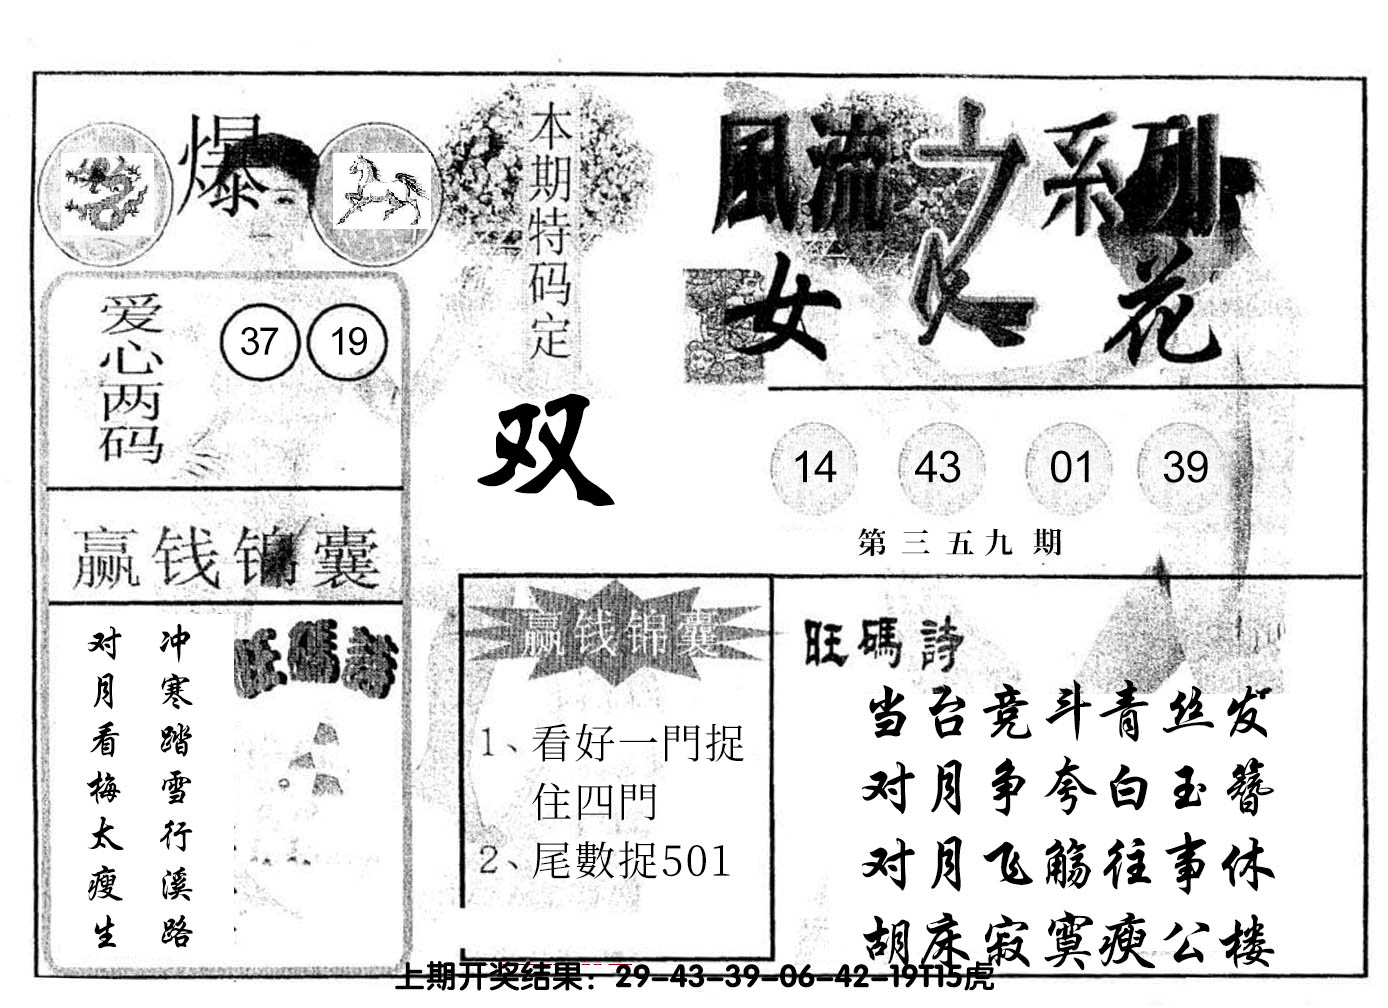 爆
本期特码定
双
風流之系列
女人花
爱心两码
37 19
14 43 01 39
第三五九期
赢钱锦囊
冲寒踏雪行溪路
对月看梅太瘦生
旺碼詩
赢钱锦囊
1、看好一門捉
住四門
2、尾數捉501
旺碼詩
当台竞斗青丝发
对月争夸白玉簪
对月飞觞往事休
胡床寂寞瘐公楼
上期开奖结果：29-43-39-06-42-19T15虎